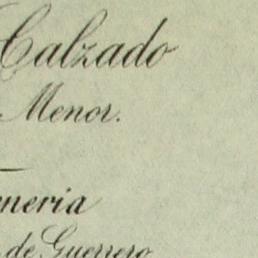 Calzado
Menor.
neria
de Guerrero